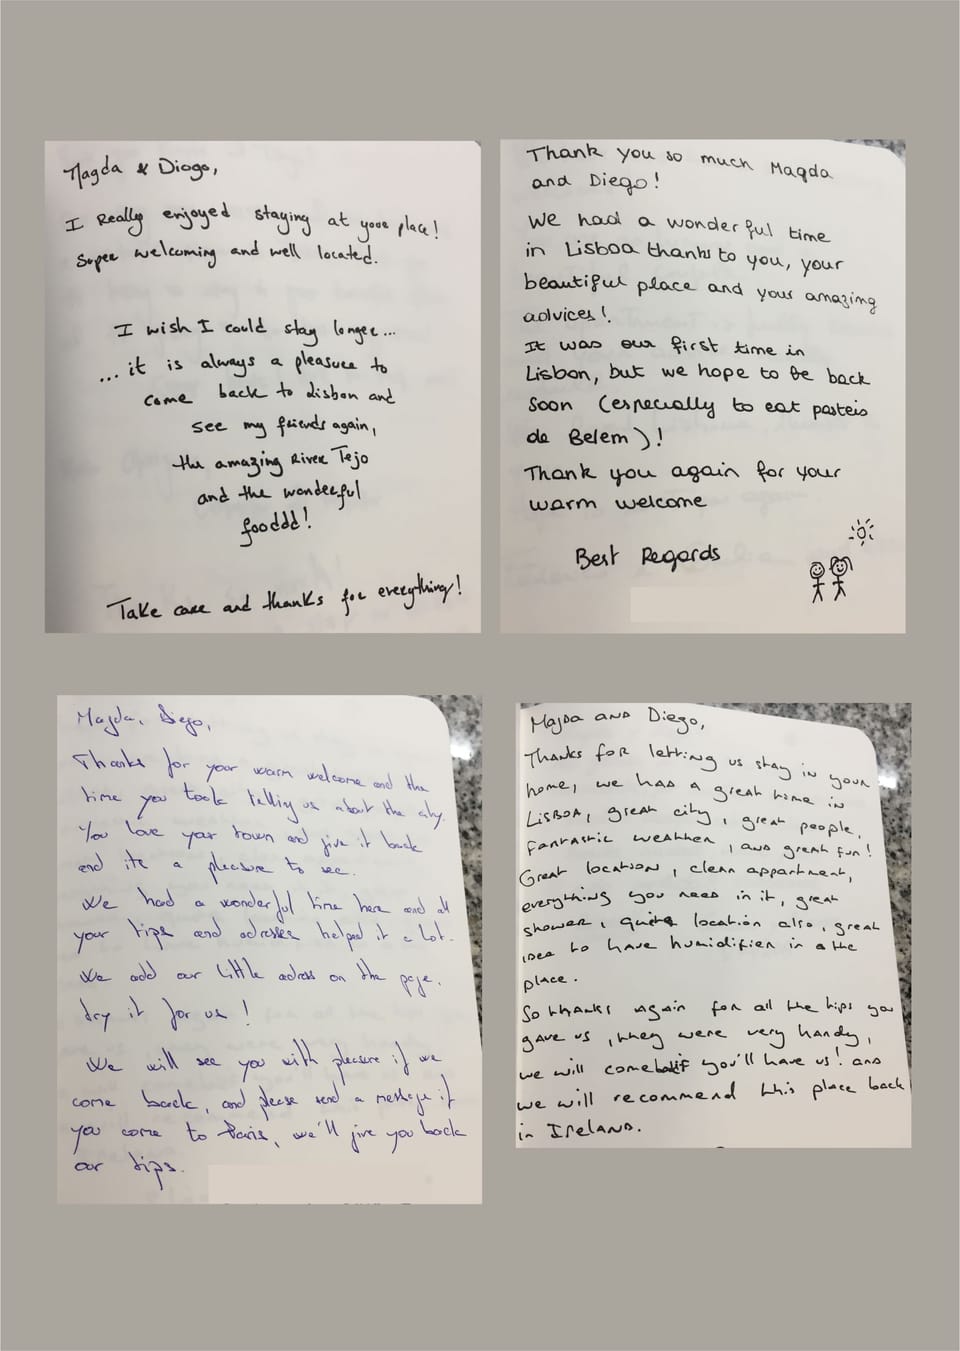 Magda & Diogo,
I Really enjoyed staying at your place!
Super welcoming and well located.
I wish I could stay longer...
... it is always a pleasure to
come back to Lisbon and
see my friends again,
the amazing River Tejo
and the wonderful
fooddd!
Take care and thanks for everything!
Thank you so much Magda
and Diego!
We had a wonderful time
in Lisboa thanks to you, your
beautiful place and your amazing
advices!
It was our first time in
Lisbon, but we hope to be back
soon (especially to eat pasteis
de Belem)!
Thank you again for your
warm welcome
Best Regards
Magda, Diego,
Thanks for your warm welcome and the
time you took telling us about the city.
You love your town and give it back
and its a pleasure to see.
We had a wonderful time here and all
your tips and adresses helped it a lot.
We add our little adress on the page,
try it for us!
We will see you with pleasure if we
come back, and please send a message if
you come to Paris, we'll give you back
our tips.
Magda and Diego,
Thanks for letting us stay in your
home, we had a great time in
Lisboa, great city, great people,
fantastic weather, and great fun!
Great location, clean appartment,
everything you need in it, great
shower, quite location also, great
idea to have humidifier in the
place.
So thanks again for all the tips you
gave us, they were very handy,
we will come if you'll have us! and
we will recommend this place back
in Ireland.